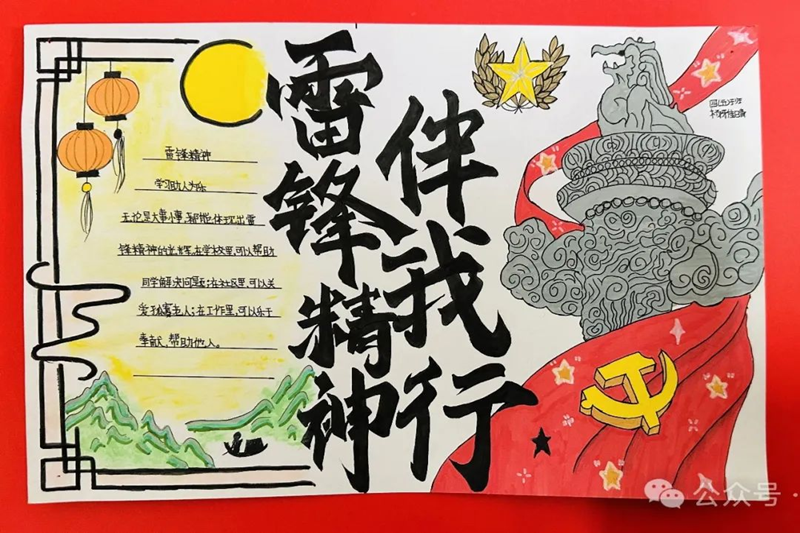 雷锋精神
伴我行
雷锋精神
学习助人为乐
无论是大事小事,都能体现出雷
锋精神的光辉,在学校里,可以帮助
同学解决问题;在社区里,可以关
爱孤寡老人;在工作里,可以乐于
奉献,帮助他人。
公众号 ·